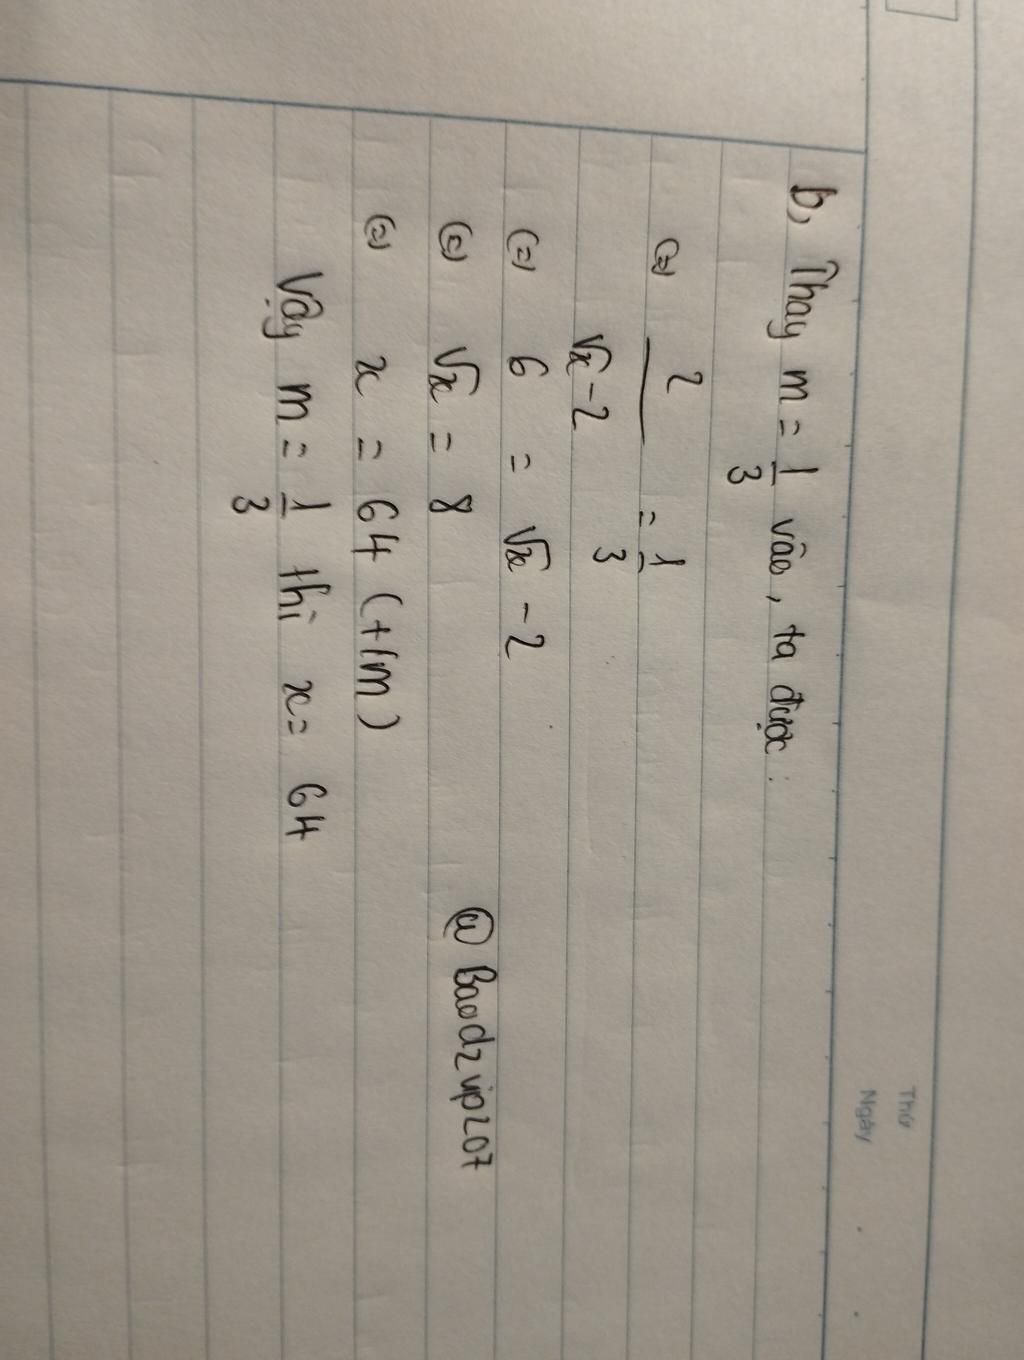 Thứ
Ngày
b, Thay m = 1/3 vào, ta được:
(=) 2/(√x - 2) = 1/3
(=) 6 = √x - 2
(=) √x = 8
(=) x = 64 (t/m)
Vậy m = 1/3 thì x = 64
@Baodzvip207